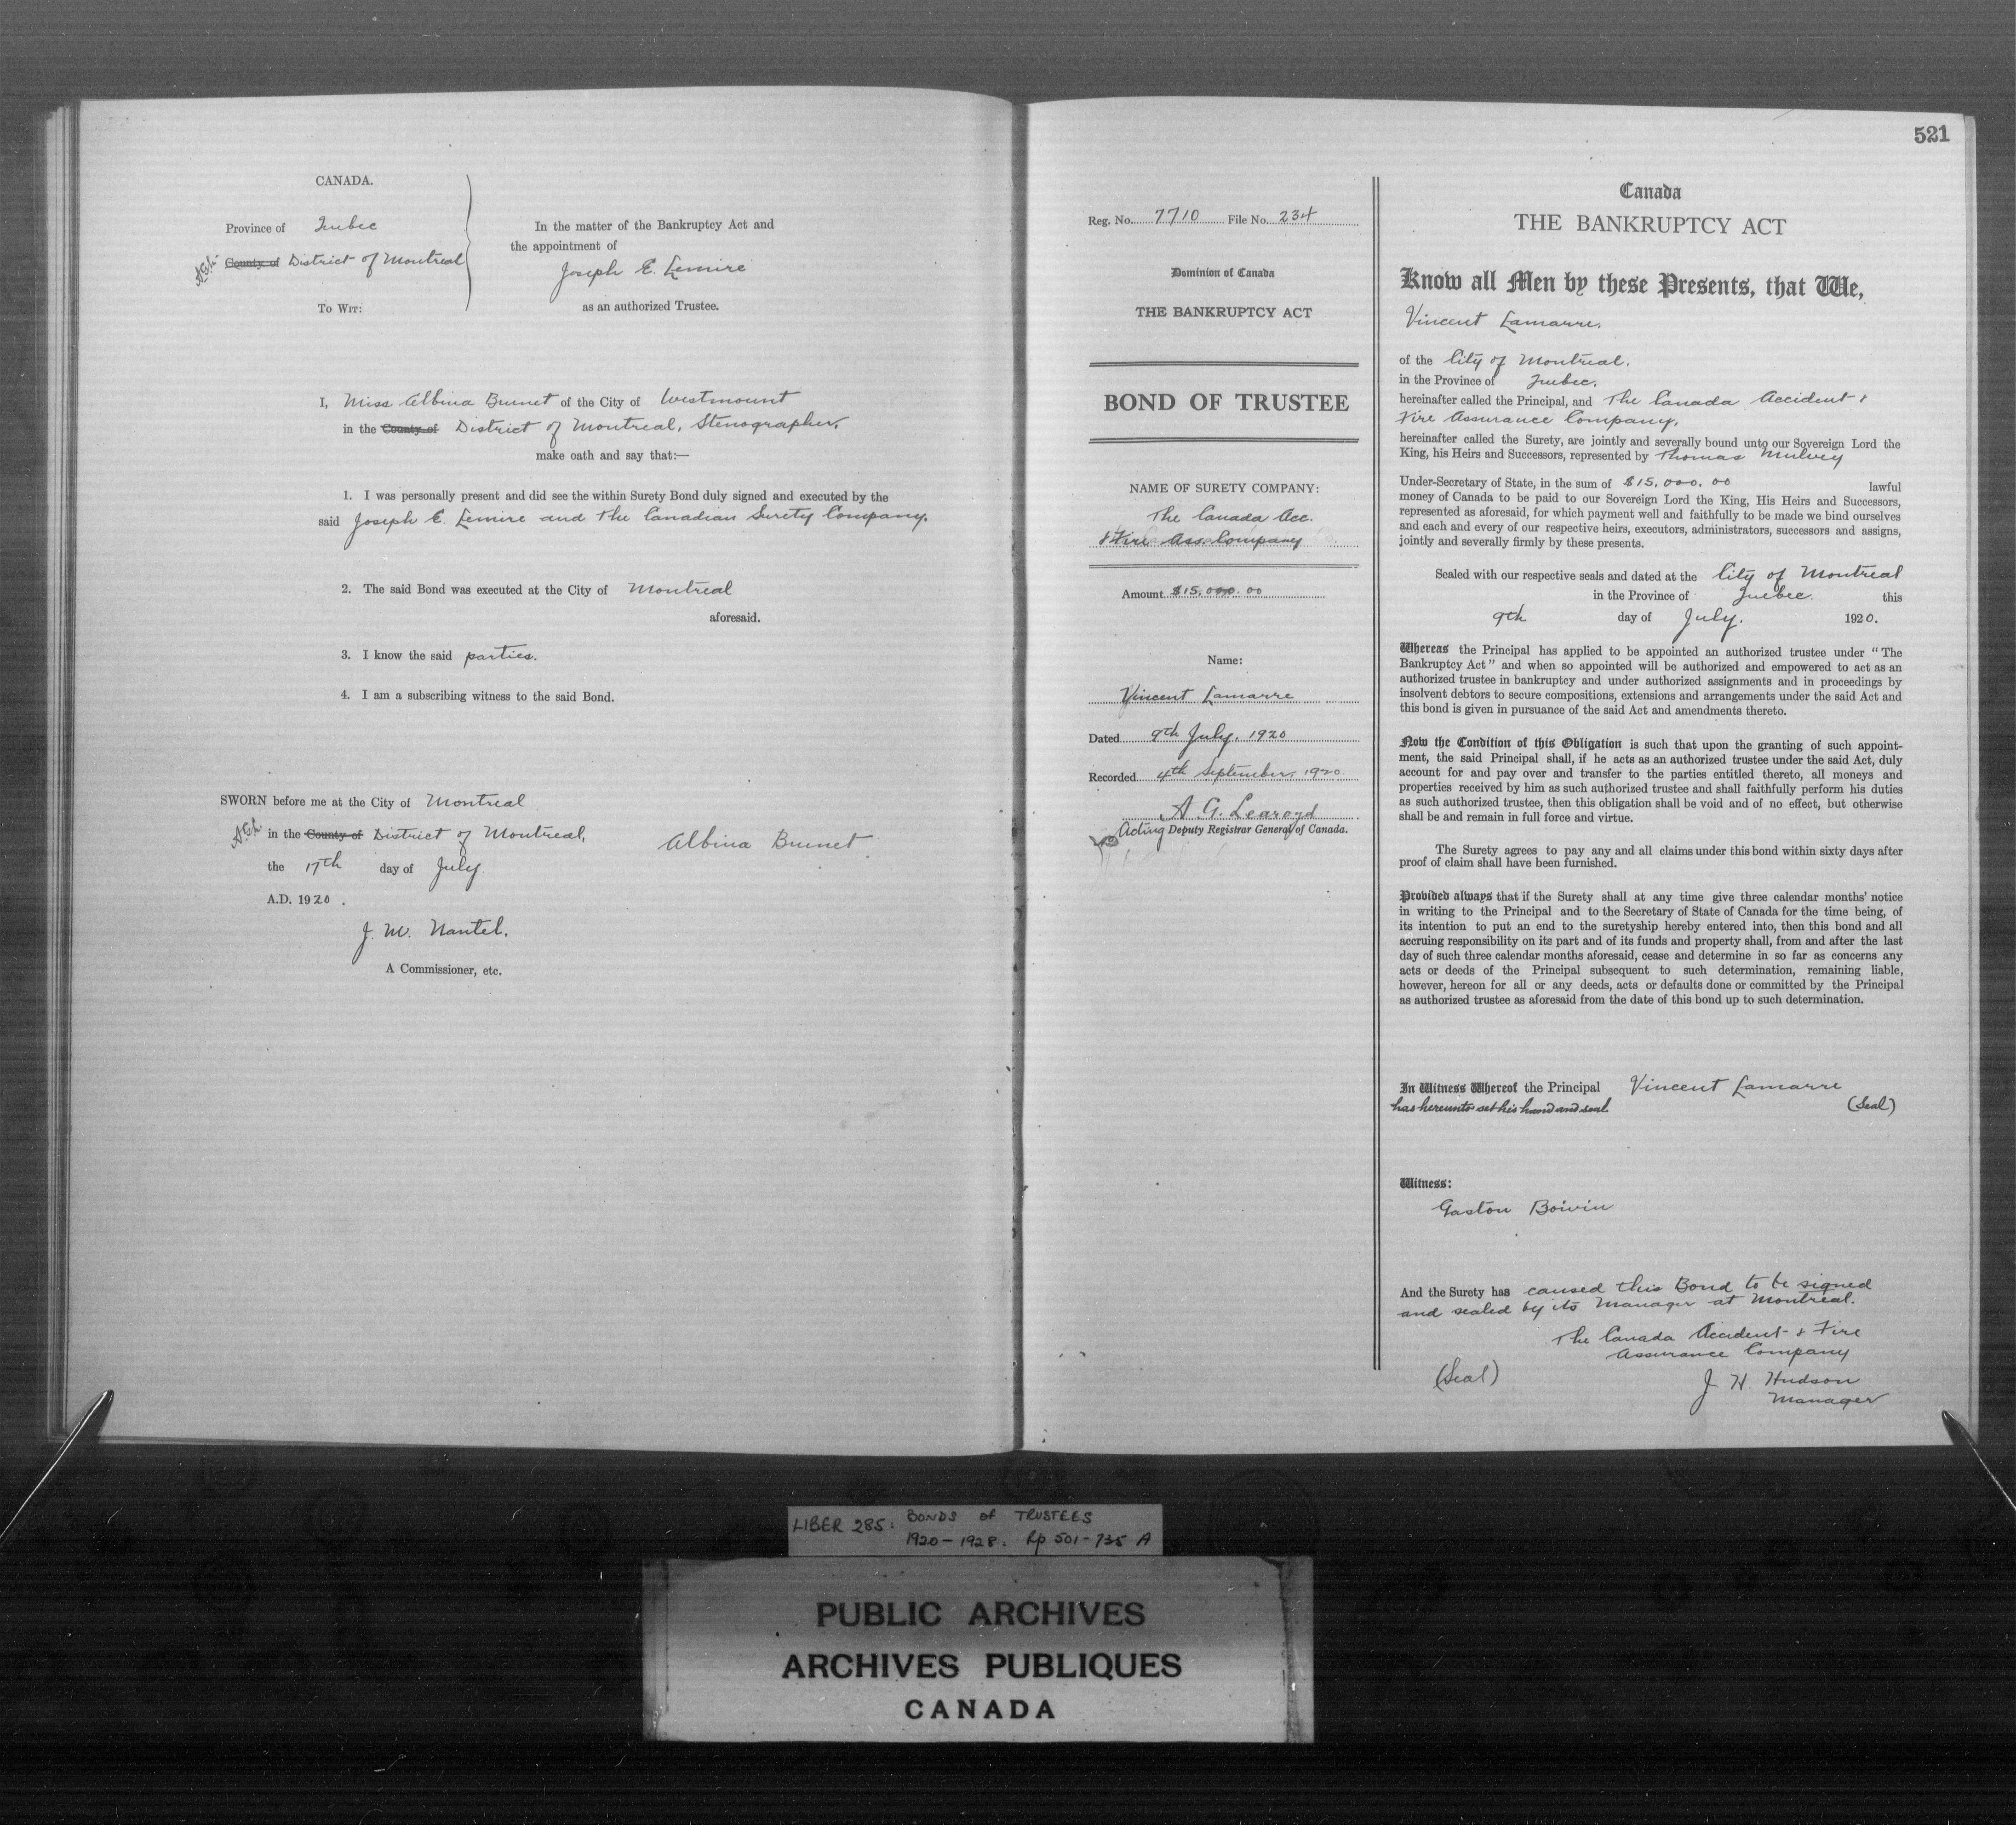 CANADA.
Province of Quebec
A.G.L. County of District of Montreal
To Wit:
In the matter of the Bankruptcy Act and
the appointment of
Joseph E. Lemire
as an authorized Trustee.
I, Miss Albina Brunet of the City of Westmount
in the County of District of Montreal, Stenographer,
make oath and say that:—
1. I was personally present and did see the within Surety Bond duly signed and executed by the
said Joseph E. Lemire and The Canadian Surety Company.
2. The said Bond was executed at the City of Montreal
aforesaid.
3. I know the said parties.
4. I am a subscribing witness to the said Bond.
SWORN before me at the City of Montreal
A.G.L. in the County of District of Montreal,
the 17th day of July
A.D. 1920.
Albina Brunet
J. M. Nantel.
A Commissioner, etc.
521
Reg. No. 7710 File No. 234
Dominion of Canada
THE BANKRUPTCY ACT
BOND OF TRUSTEE
NAME OF SURETY COMPANY:
The Canada Acc.
& Fire Ass. Company
Amount $15,000.00
Name:
Vincent Lamarre
Dated 9th July, 1920
Recorded 4th September, 1920
A. G. Learoyd
Acting Deputy Registrar General of Canada.
Canada
THE BANKRUPTCY ACT
Know all Men by these Presents, that We,
Vincent Lamarre,
of the City of Montreal,
in the Province of Quebec,
hereinafter called the Principal, and The Canada Accident &
Fire Assurance Company,
hereinafter called the Surety, are jointly and severally bound unto our Sovereign Lord the
King, his Heirs and Successors, represented by Thomas Mulvey
Under-Secretary of State, in the sum of $15,000.00 lawful
money of Canada to be paid to our Sovereign Lord the King, His Heirs and Successors,
represented as aforesaid, for which payment well and faithfully to be made we bind ourselves
and each and every of our respective heirs, executors, administrators, successors and assigns,
jointly and severally firmly by these presents.
Sealed with our respective seals and dated at the City of Montreal
in the Province of Quebec. this
9th day of July. 1920.
Whereas the Principal has applied to be appointed an authorized trustee under "The
Bankruptcy Act" and when so appointed will be authorized and empowered to act as an
authorized trustee in bankruptcy and under authorized assignments and in proceedings by
insolvent debtors to secure compositions, extensions and arrangements under the said Act and
this bond is given in pursuance of the said Act and amendments thereto.
Now the Condition of this Obligation is such that upon the granting of such appoint-
ment, the said Principal shall, if he acts as an authorized trustee under the said Act, duly
account for and pay over and transfer to the parties entitled thereto, all moneys and
properties received by him as such authorized trustee and shall faithfully perform his duties
as such authorized trustee, then this obligation shall be void and of no effect, but otherwise
shall be and remain in full force and virtue.
The Surety agrees to pay any and all claims under this bond within sixty days after
proof of claim shall have been furnished.
Provided always that if the Surety shall at any time give three calendar months' notice
in writing to the Principal and to the Secretary of State of Canada for the time being, of
its intention to put an end to the suretyship hereby entered into, then this bond and all
accruing responsibility on its part and of its funds and property shall, from and after the last
day of such three calendar months aforesaid, cease and determine in so far as concerns any
acts or deeds of the Principal subsequent to such determination, remaining liable,
however, hereon for all or any deeds, acts or defaults done or committed by the Principal
as authorized trustee as aforesaid from the date of this bond up to such determination.
In Witness Whereof the Principal Vincent Lamarre
has hereunto set his hand and seal (Seal)
Witness:
Gaston Boivin
And the Surety has caused this Bond to be signed
and sealed by its Manager at Montreal.
The Canada Accident & Fire
Assurance Company
(Seal)
J. H. Hudson
Manager
LIBER 285: BONDS of TRUSTEES
1920-1928: Pp 501-735 A
PUBLIC ARCHIVES
ARCHIVES PUBLIQUES
CANADA